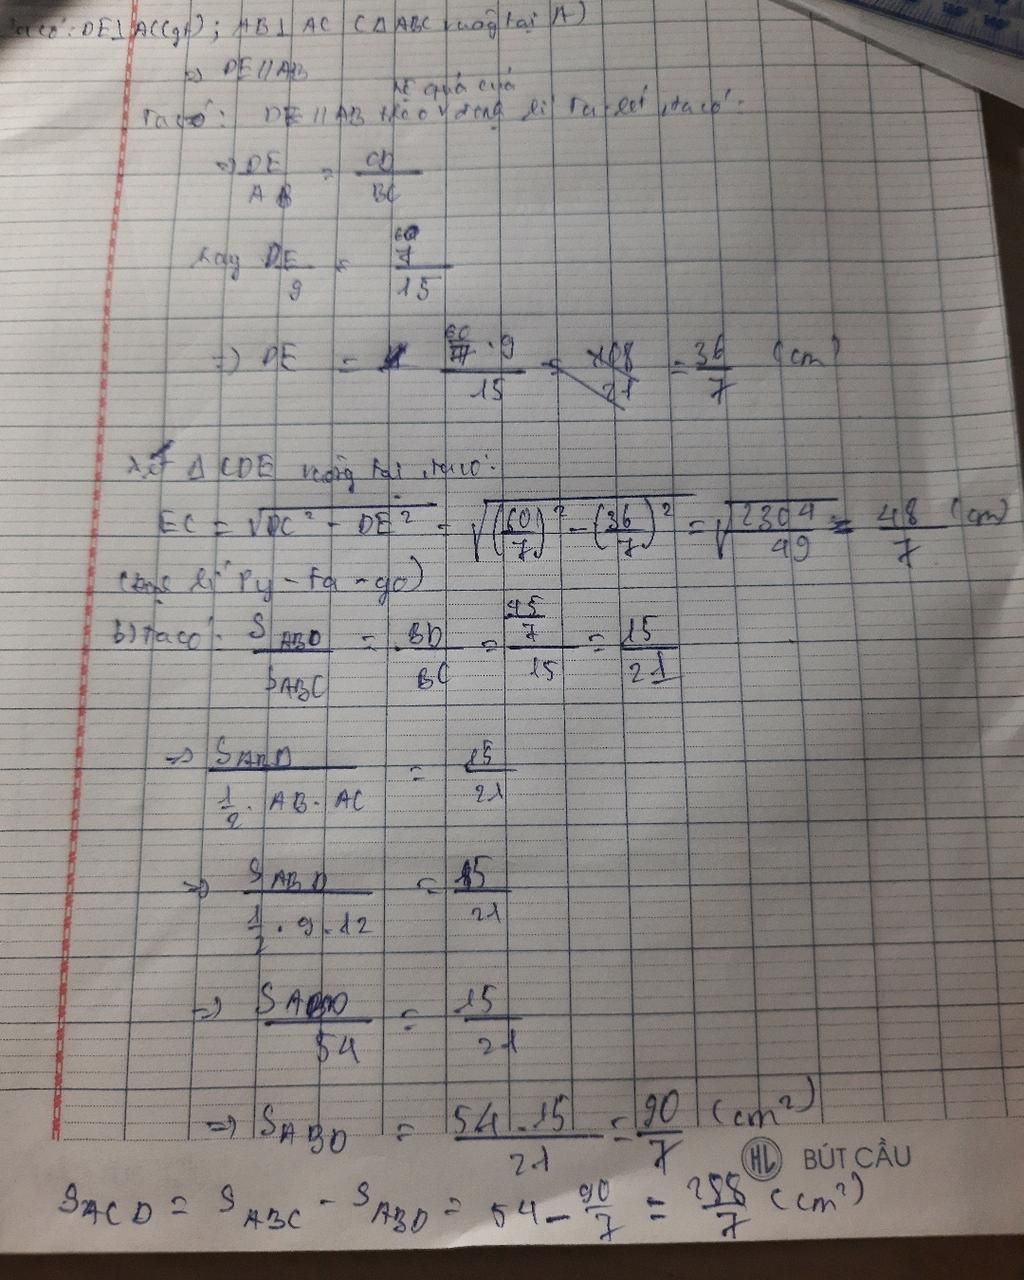 Ta có: DE⊥AC(gt); AB⊥AC (ΔABC vuông tại A)
=> DE//AB
hệ quả của
Ta có: DE//AB theo định lí Ta-lét, ta có:
=> DE/AB = CD/BC
hay DE/9 = (60/7)/15
=> DE = (60/7 · 9)/15 = 36/7 (cm)
Xét ΔCDE vuông tại, ta có:
EC = √(DC² - DE²) = √((60/7)² - (36/7)²) = √(2304/49) = 48/7 (cm)
(định lí Py-ta-go)
b) Ta có: S ABD/S ABC = BD/BC = (45/7)/15 = 15/21
=> S ABD/(1/2 · AB · AC) = 15/21
=> S ABD/(1/2 · 9 · 12) = 15/21
=> S ABD/54 = 15/21
=> S ABD = (54 · 15)/21 = 90/7 (cm²)
HL BÚT CẦU
S ACD = S ABC - S ABD = 54 - 90/7 = 288/7 (cm²)